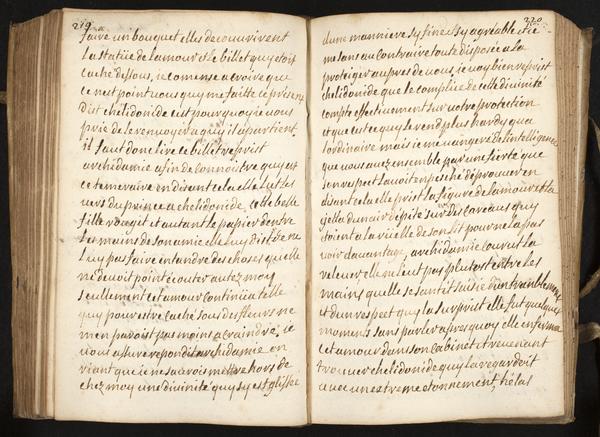 219
faire un bouquet elles decouurirent
la statüe de lamour et le billet quy etoit
caché dessous, ie comense a croire que
ce nest point uous quy me faitte ce present
dist chelidonide cest pourquoy ie uous
prie de le renuoyer a quy il apartient
il faut donc lire ce billet reprist
archidamie afin de connoistre quy est
ce temeraire en disant cela elle lut les
uers du prince a chelidonide, cette belle
fille rougit et autant le papier dentre
les mains de son amie elle luy dist de ne
luy pas faire entandre des choses quelle
ne deuoit point écouter autez moy
seullement cet amour continüa telle
quy pour estre caché sous des fleurs ne
men paroist pas moins a craindre, ie
uous assure repondit archidamie en
riant que ie ne saurois mettre hors de
chez moy une divinité quy sy est glissée
220
dune manniere sy fine et sy agréable et ie
me sans au contraire toute disposée a la
protéger aupres de uous, ie uoy bien reprist
chelidonide que le complice de cette diuinité
compte effectiuement sur uotre protection
et que cest ce quy le rend plus hardy qua
lordinaire mais ie me uangeré de lintelligence
que uous auez ensemble par une fierté que
son respect lauoit enpesché déprouuer en
disant cela elle prist la figure de lamour et la
ietta dun air dépité sur des careaus quy
étoient a la ruelle de son lit pour ne la pas
uoir dauantage, archidamie courut la
releuer, elle ne leut pas plutost entre les
mains quelle se santit saisie dun tramblement
et dun respect quy la surprist elle fut quelques
momens sans parler apres quoy elle enferma
cet amour dans son cabinet et reuenant
trouuer chelidonide quy la regardoit
auec un estreme etonnement, helas